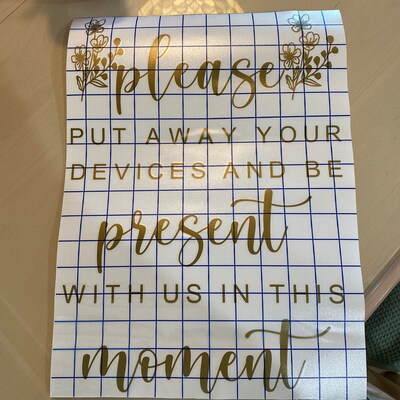 please
PUT AWAY YOUR
DEVICES AND BE
present
WITH US IN THIS
moment